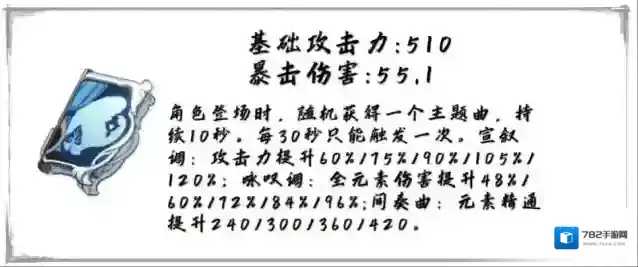 基础攻击力:510
暴击伤害:55.1
角色登场时，随机获得一个主题曲，持
续10秒。每30秒只能触发一次。宣叙
调：攻击力提升60%/75%/90%/105%/
120%；咏叹调：全元素伤害提升48%/
60%/72%/84%/96%;间奏曲：元素精通
提升240/300/360/420。
782手游网